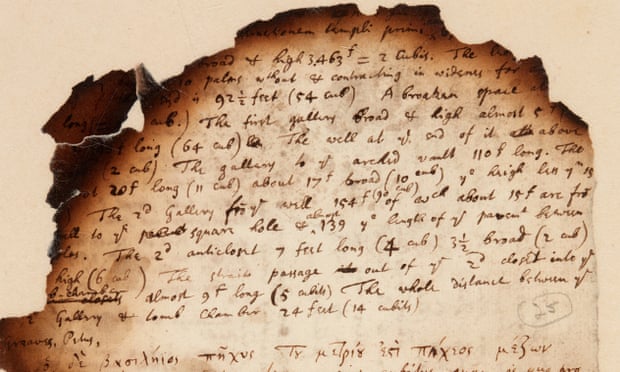 templi primi
broad & high 3,463 f = 2 Cubits. The
palms wthout & contracting in wideness for
end is 92½ feet (54 cub) A broaken space at
long cub.) The first gallery broad & high almost 5
long (64 cub) The well at ye end of it above
(2 cub) The gallery to ye arched vault 110 f long. The
20 f long (11 cub) about 17 f broad (10 cub) ye heigh less yn 15
) The 2d Gallery fro ye well 154 f (90 cub) of wch about 15 f are fro
all to ye square hole & almost 139 ye length of ye pavemt between
The 2d anticloset 7 feet long (4 cub) 3½ broad (2 cub)
high (6 cub) The straite passage out of ye 2d closet into ye
almost 9 f long (5 cubits) The whole distance between ye
2 Gallery & tomb chamber 24 feet (14 cubits)
25
Greaves,
ὁ δὲ βασιλήιος πῆχυς τοῦ μετρίου ἐστὶ πήχεος μέζων